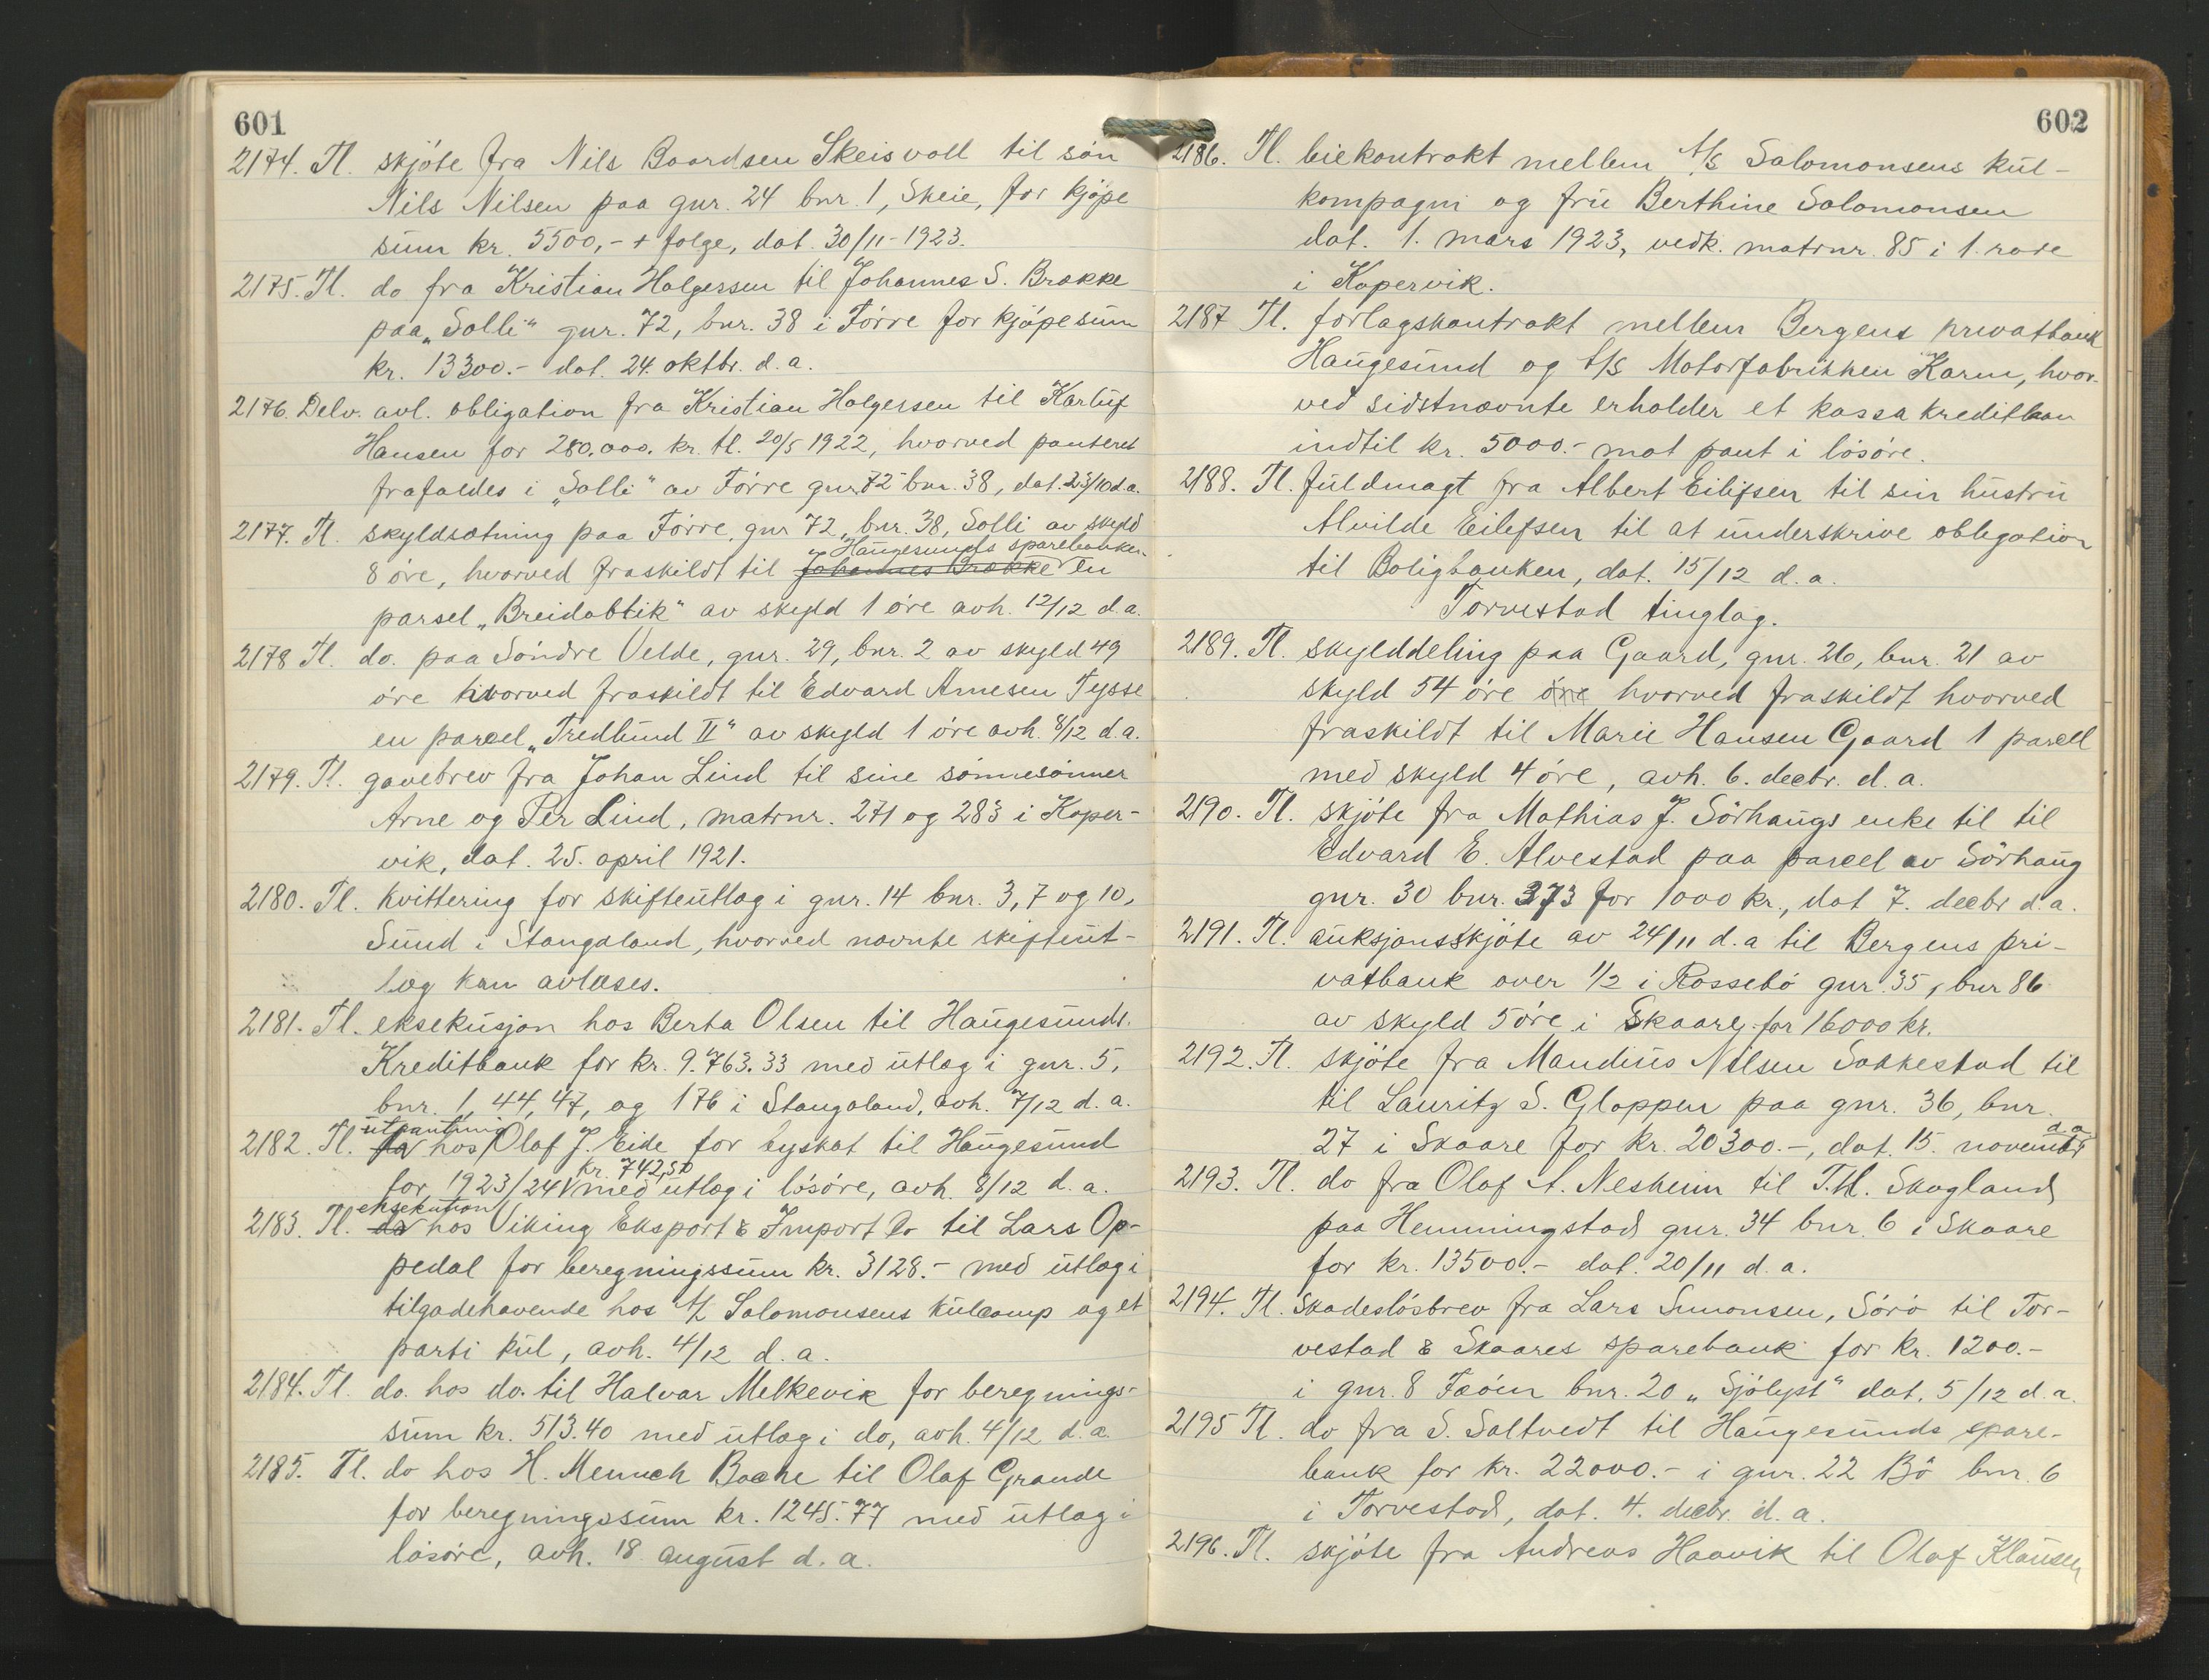 601
2174. Tl. skjöte fra Nils Baardsen Skeisvoll til sön
Nils Nilsen paa gnr. 24 bnr. 1, Skeie, for kjöpe
sum kr. 5500,- + følge, dat. 30/11-1923.
2175. Tl. do fra Kristian Holgersen til Johannes S. Brække
paa „Solli" gnr. 72, bnr. 38 i Förre for kjöpesum
kr. 13300.- dat. 24. oktbr. d. a.
2176. Delv. avl. obligation fra Kristian Holgersen til Karluf
Hansen for 280.000. kr. tl. 20/5 1922, hvorved panteret
frafaldes i „Solli" av Förre gnr. 72 bnr. 38, dat. 23/10 d.a.
2177. Tl. skyldsætning paa Förre, gnr 72, bnr. 38, Solli av skyld
Haugesunds sparebanken
8 öre, hvorved fraskildt til Johannes Brække en
parsel „Breidablik" av skyld 1 öre avh. 12/12 d. a.
2178 Tl. do. paa Söndre Velde, gnr. 29, bnr. 2 av skyld 49
öre hvorved fraskildt til Edvard Arnesen Tysse
en parcel „Fredlund II" av skyld 1 öre avh. 8/12 d. a.
2179. Tl. gavebrev fra Johan Lind til sine sönnesönner
Arne og Per Lind, matrnr. 271 og 283 i Koper-
vik, dat. 25. april 1921.
2180. Tl. kvittering for skifteutlæg i gnr. 14 bnr. 3, 7 og 10,
Sund i Stangaland, hvorved nævnte skifteut-
læg kan avlæses.
2181. Tl. eksekusjon hos Berta Olsen til Haugesunds
Kreditbank for kr. 9.763.33 med utlæg i gnr. 5,
bnr. 1, 44, 47, og 176 i Stangaland, avh. 7/12 d. a.
utpantning
2182. Tl. do hos Olaf J. Eide for byskat til Haugesund
kr. 742,50
for 1923/24 med utlæg i lösöre, avh. 8/12 d. a.
eksekution
2183. Tl. do hos Viking Eksport & Import Co til Lars Op-
pedal for beregningssum kr. 3128.- med utlæg i
tilgodehavende hos A/S Salomonsens kulcomp og et
parti kul, avh. 4/12 d. a.
2184. Tl. do. hos do. til Halvar Melkevik for beregnings-
sum kr. 513.40 med utlæg i do, avh. 4/12 d. a.
2185. Tl. do hos H. Mennch Boche til Olaf Grande
for beregningssum kr. 1245.77 med utlæg i
lösöre, avh. 18 august d. a.
602
2186. Tl. leiekontrakt mellem A/S Salomonsens kul-
kompagni og fru Berthine Salomonsen
dat. 1. mars 1923, vedk. matrnr. 85 i 1. rode
i Kopervik.
2187 Tl. forlagskontrakt mellem Bergens privatbank
Haugesund og A/S Motorfabrikken Karm, hvor-
ved sidstnævnte erholder et kassakreditlaan
indtil kr. 5000.- mot pant i lösöre.
2188. Tl. fuldmagt fra Albert Eilifsen til sin hustru
Alvilde Eilefsen til at underskrive obligation
til Boligbanken, dat. 15/12 d. a.
Torvestad tinglag.
2189. Tl. skylddeling paa Gaard, gnr. 26, bnr. 21 av
skyld 54 öre öre hvorved fraskildt hvorved
fraskildt til Marie Hansen Gaard 1 parcell
med skyld 4 öre, avh. 6. decbr. d. a.
2190. Tl. skjöte fra Mathias J. Sörhaugs enke til til
Edvard E. Alvestad paa parcel av Sörhaug
gnr. 30 bnr. 373 for 1000 kr., dat 7. decbr d. a.
2191. Tl. auksjonsskjöte av 24/11 d. a til Bergens pri-
vatbank over 1/2 i Rossebö gnr. 35, bnr 86
av skyld 5 öre i Skaare, for 16000 kr.
2192. Tl. skjöte fra Mandius Nilsen Sakkestad til
til Lauritz S. Gloppen paa gnr. 36, bnr.
27 i Skaare for kr. 20300.-, dat. 15. novembr d. a.
2193. Tl. do fra Olaf A. Nesheim til T.H. Skogland
paa Hemmingstad gnr. 34 bnr. 6 i Skaare
for kr. 13500.- dat. 20/11 d. a.
2194. Tl. Skadeslösbrev fra Lars Simonsen, Sörö til Tor-
vestad & Skaares sparebank for kr. 1200.-
i gnr. 8 Fæöen bnr. 20 „Sjölyst" dat. 5/12 d. a.
2195 Tl. do fra S. Saltvedt til Haugesunds spare-
bank for kr. 22000.- i gnr. 22 Bö bnr. 6
i Torvestad, dat. 4. decbr. d. a.
2196. Tl. skjöte fra Andreas Haavik til Olaf Klausen